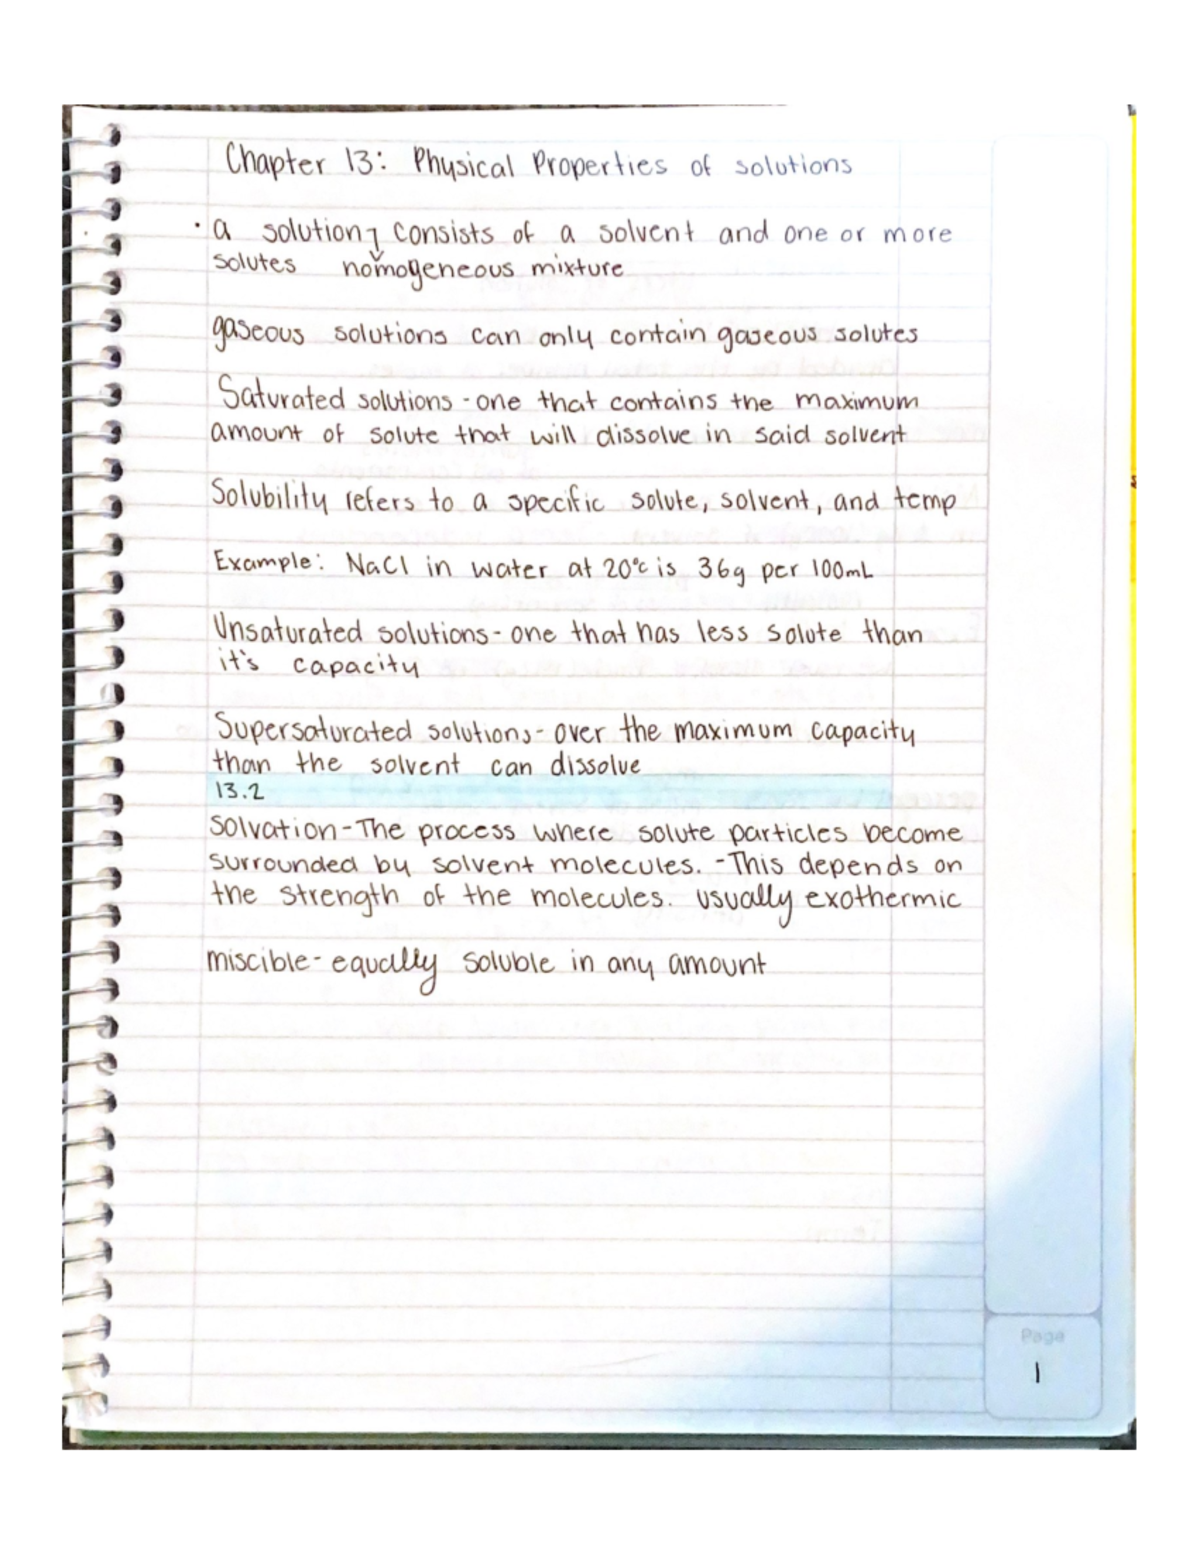 Chapter 13: Physical Properties of solutions
• a solution consists of a solvent and one or more
solutes homogeneous mixture
gaseous solutions can only contain gaseous solutes
Saturated solutions - one that contains the maximum
amount of solute that will dissolve in said solvent
Solubility refers to a specific solute, solvent, and temp
Example: NaCl in water at 20°c is 36g per 100mL
Unsaturated solutions - one that has less solute than
it's capacity
Supersaturated solutions - over the maximum capacity
than the solvent can dissolve
13.2
Solvation - The process where solute particles become
surrounded by solvent molecules. - This depends on
the strength of the molecules. usually exothermic
miscible - equally soluble in any amount
Page
1